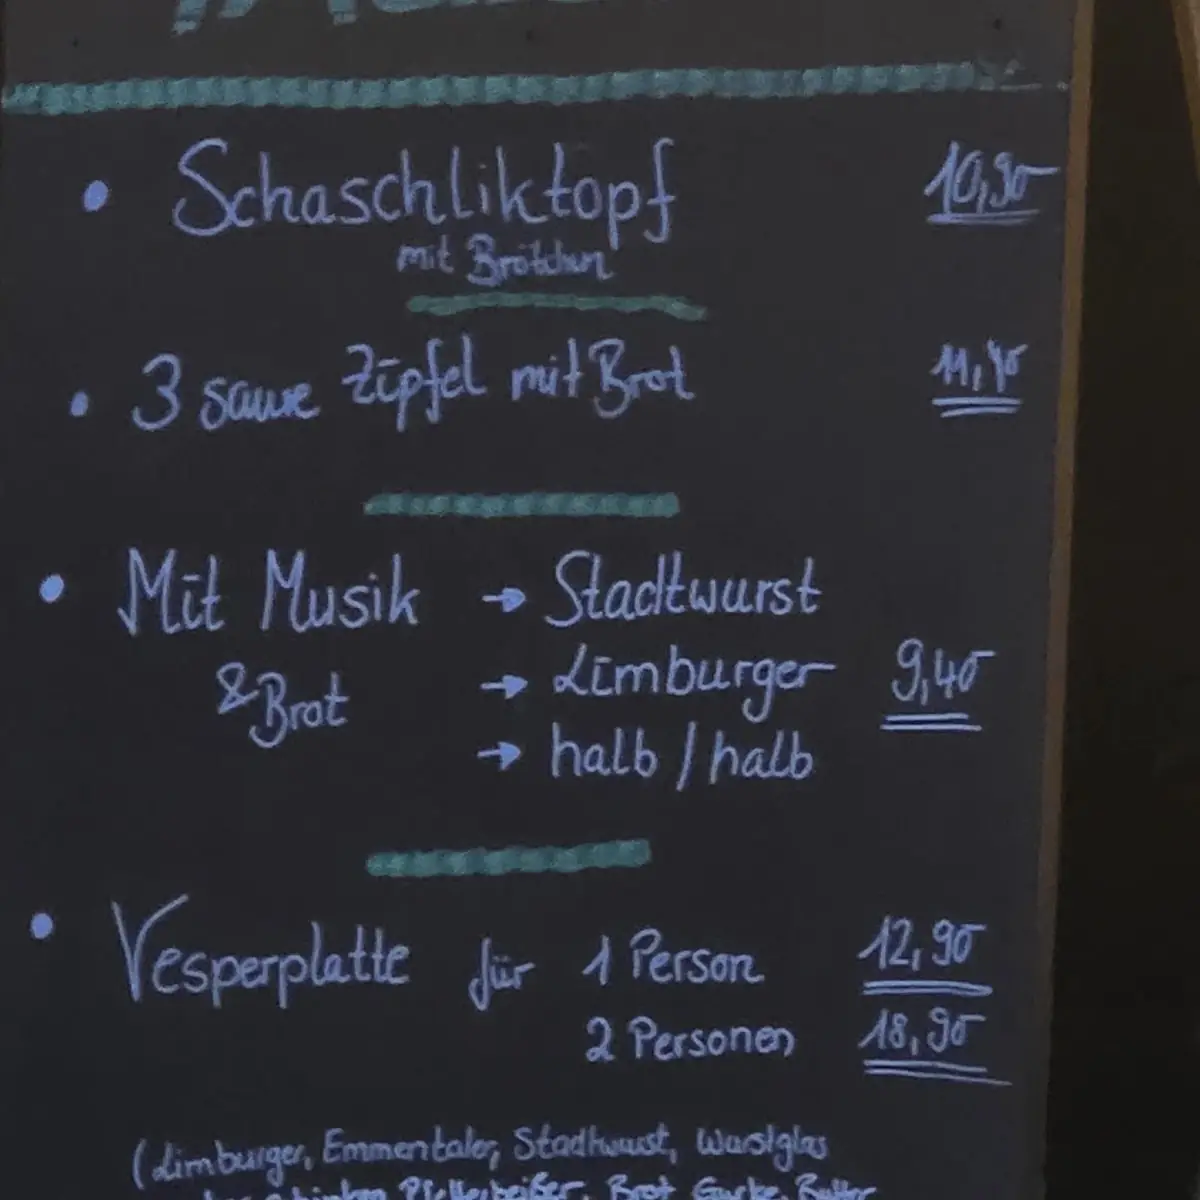 • Schaschliktopf 10,90
mit Brötchen
• 3 saure Zipfel mit Brot 11,40
• Mit Musik → Stadtwurst
& Brot → Limburger 9,40
→ halb / halb
• Vesperplatte für 1 Person 12,90
2 Personen 18,90
(Limburger, Emmentaler, Stadtwurst, Wurstglas
Pfefferbeißer, Brot, Gurke, Butter